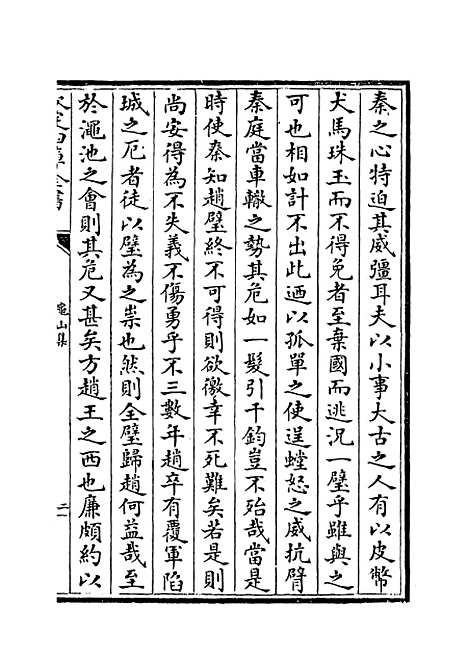 秦之心特迫其威彊耳夫以小事大古之人有以皮幣
犬馬珠玉而不得免者至棄國而逃況一璧乎雖與之
可也相如計不出此迺以孤單之使逞螳怒之威抗臂
秦庭當車轍之勢其危如一髮引千鈞豈不殆哉當是
時使秦知趙璧終不可得則欲徼幸不死難矣若是則
尚安得為不失義不傷勇乎不三數年趙卒有覆軍陷
城之厄者徒以璧為之祟也然則全璧歸趙何益哉至
於澠池之會則其危又甚矣方趙王之西也廉頗約以
欽定四庫全書
龜山集
二